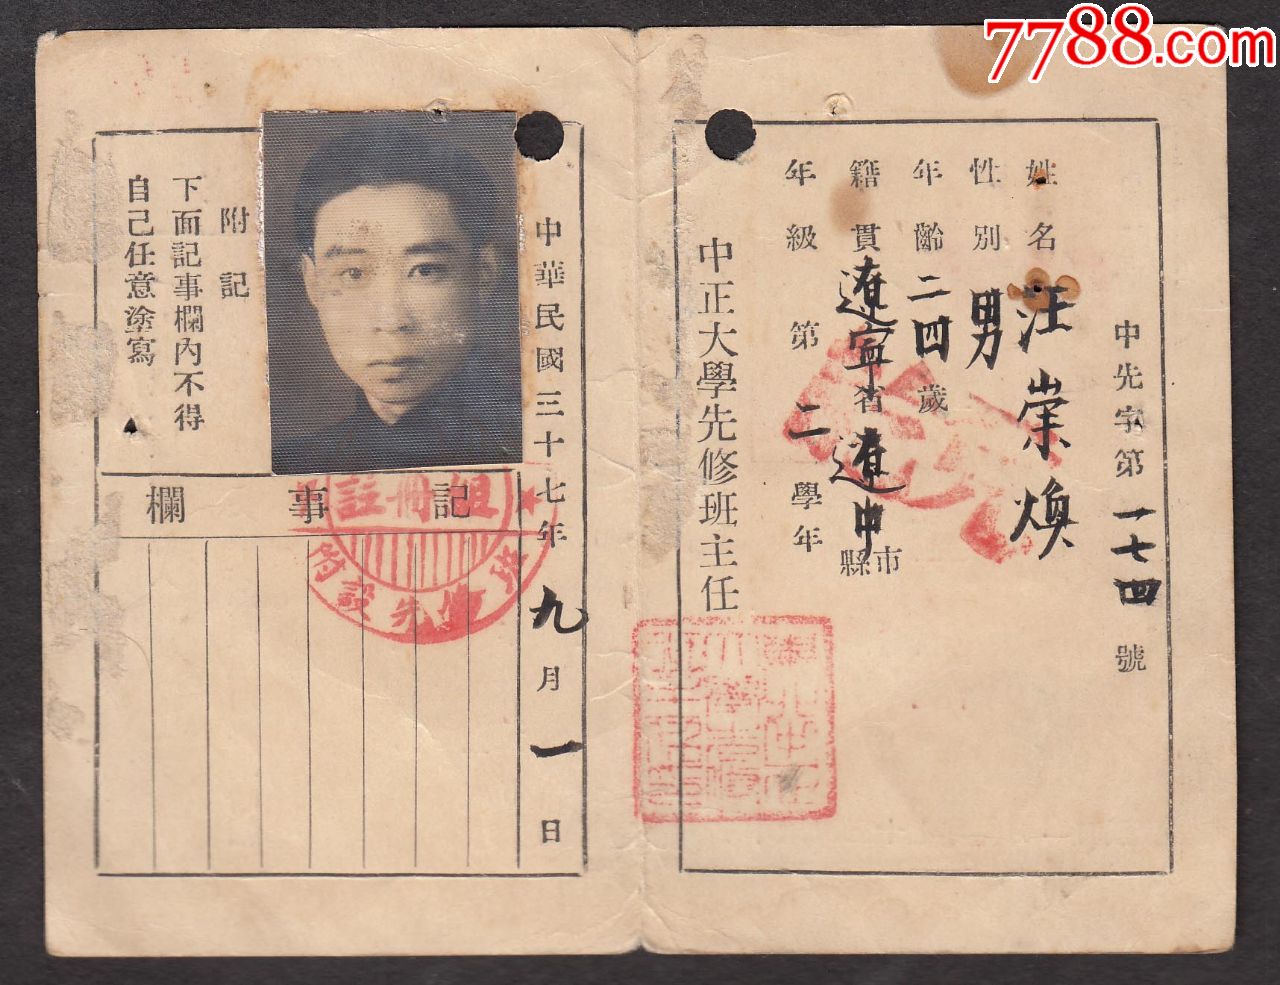 7788.com
中先字第一七四號
姓名 汪崇煥
性別 男
年齡 二四歲
籍貫 遼寧省遼中市縣
年級 第二學年
中正大學先修班主任
中華民國三十七年九月一日
附記
下面記事欄內不得
自己任意塗寫
記事欄
組冊註